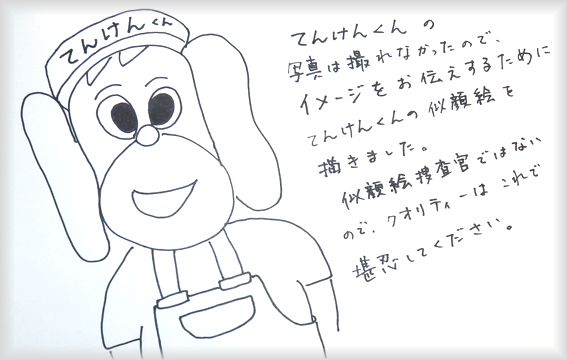 てんけんくん
てんけんくんの
写真は撮れなかったので、
イメージをお伝えするために
てんけんくんの似顔絵を
描きました。
似顔絵捜査官ではない
ので、クオリティーはこれで
堪忍してください。